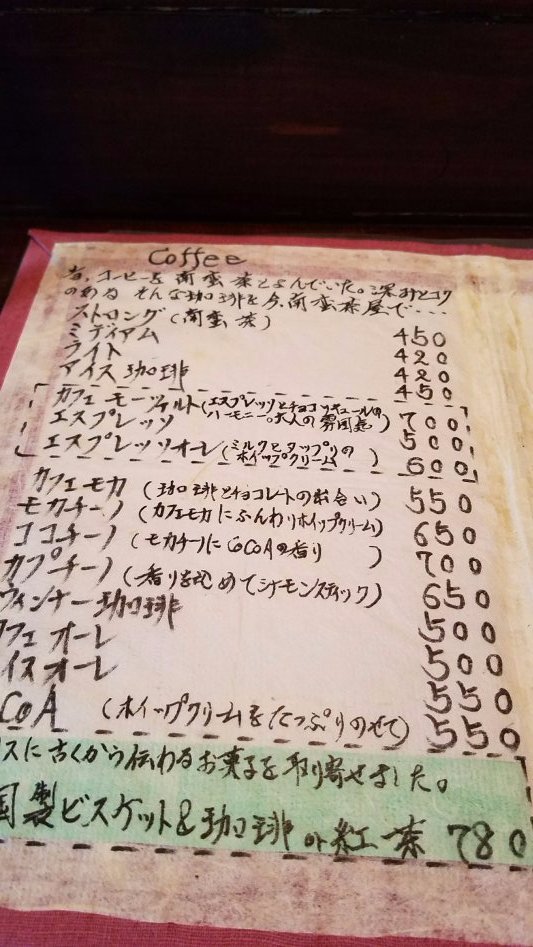 Coffee
昔、コーヒーを南蛮茶とよんでいた。深みとコク
のある そんな珈琲を今、南蛮茶屋で・・・
ストロング(南蛮茶) 450
ミディアム 420
ライト 420
アイス珈琲 450
カフェ モーツァルト(エスプレッソとチョコリキュールのハーモニー。大人の雰囲気) 700
エスプレッソ 500
エスプレッソオーレ(ミルクとタップリのホイップクリーム) 600
カフェモカ (珈琲とチョコレートの出会い) 550
モカチーノ (カフェモカにふんわりホイップクリーム) 650
ココチーノ (モカチーノにCoCoAの香り) 700
カプチーノ (香りを込めてシナモンスティック) 650
ウィンナー珈琲 500
フェオーレ 500
イスオーレ 550
CoA (ホイップクリームをたっぷりのせて) 550
スに古くから伝わるお菓子を取り寄せました。
国製ビスケット&珈琲or紅茶 780